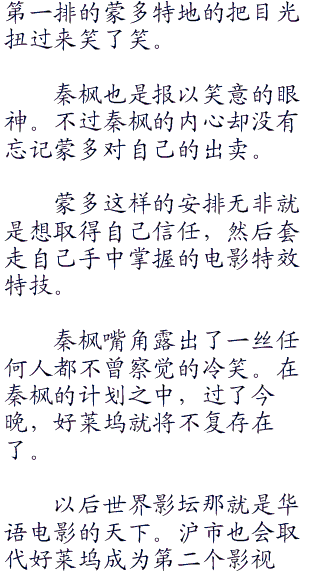 第一排的蒙多特地的把目光
扭过来笑了笑。
秦枫也是报以笑意的眼
神。不过秦枫的内心却没有
忘记蒙多对自己的出卖。
蒙多这样的安排无非就
是想取得自己信任，然后套
走自己手中掌握的电影特效
特技。
秦枫嘴角露出了一丝任
何人都不曾察觉的冷笑。在
秦枫的计划之中，过了今
晚，好莱坞就将不复存在
了。
以后世界影坛那就是华
语电影的天下。沪市也会取
代好莱坞成为第二个影视